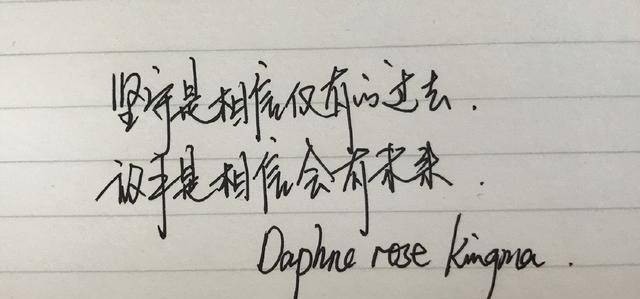 坚守是相信仅有的过去.
放手是相信会有未来.
Daphne rose kingma.